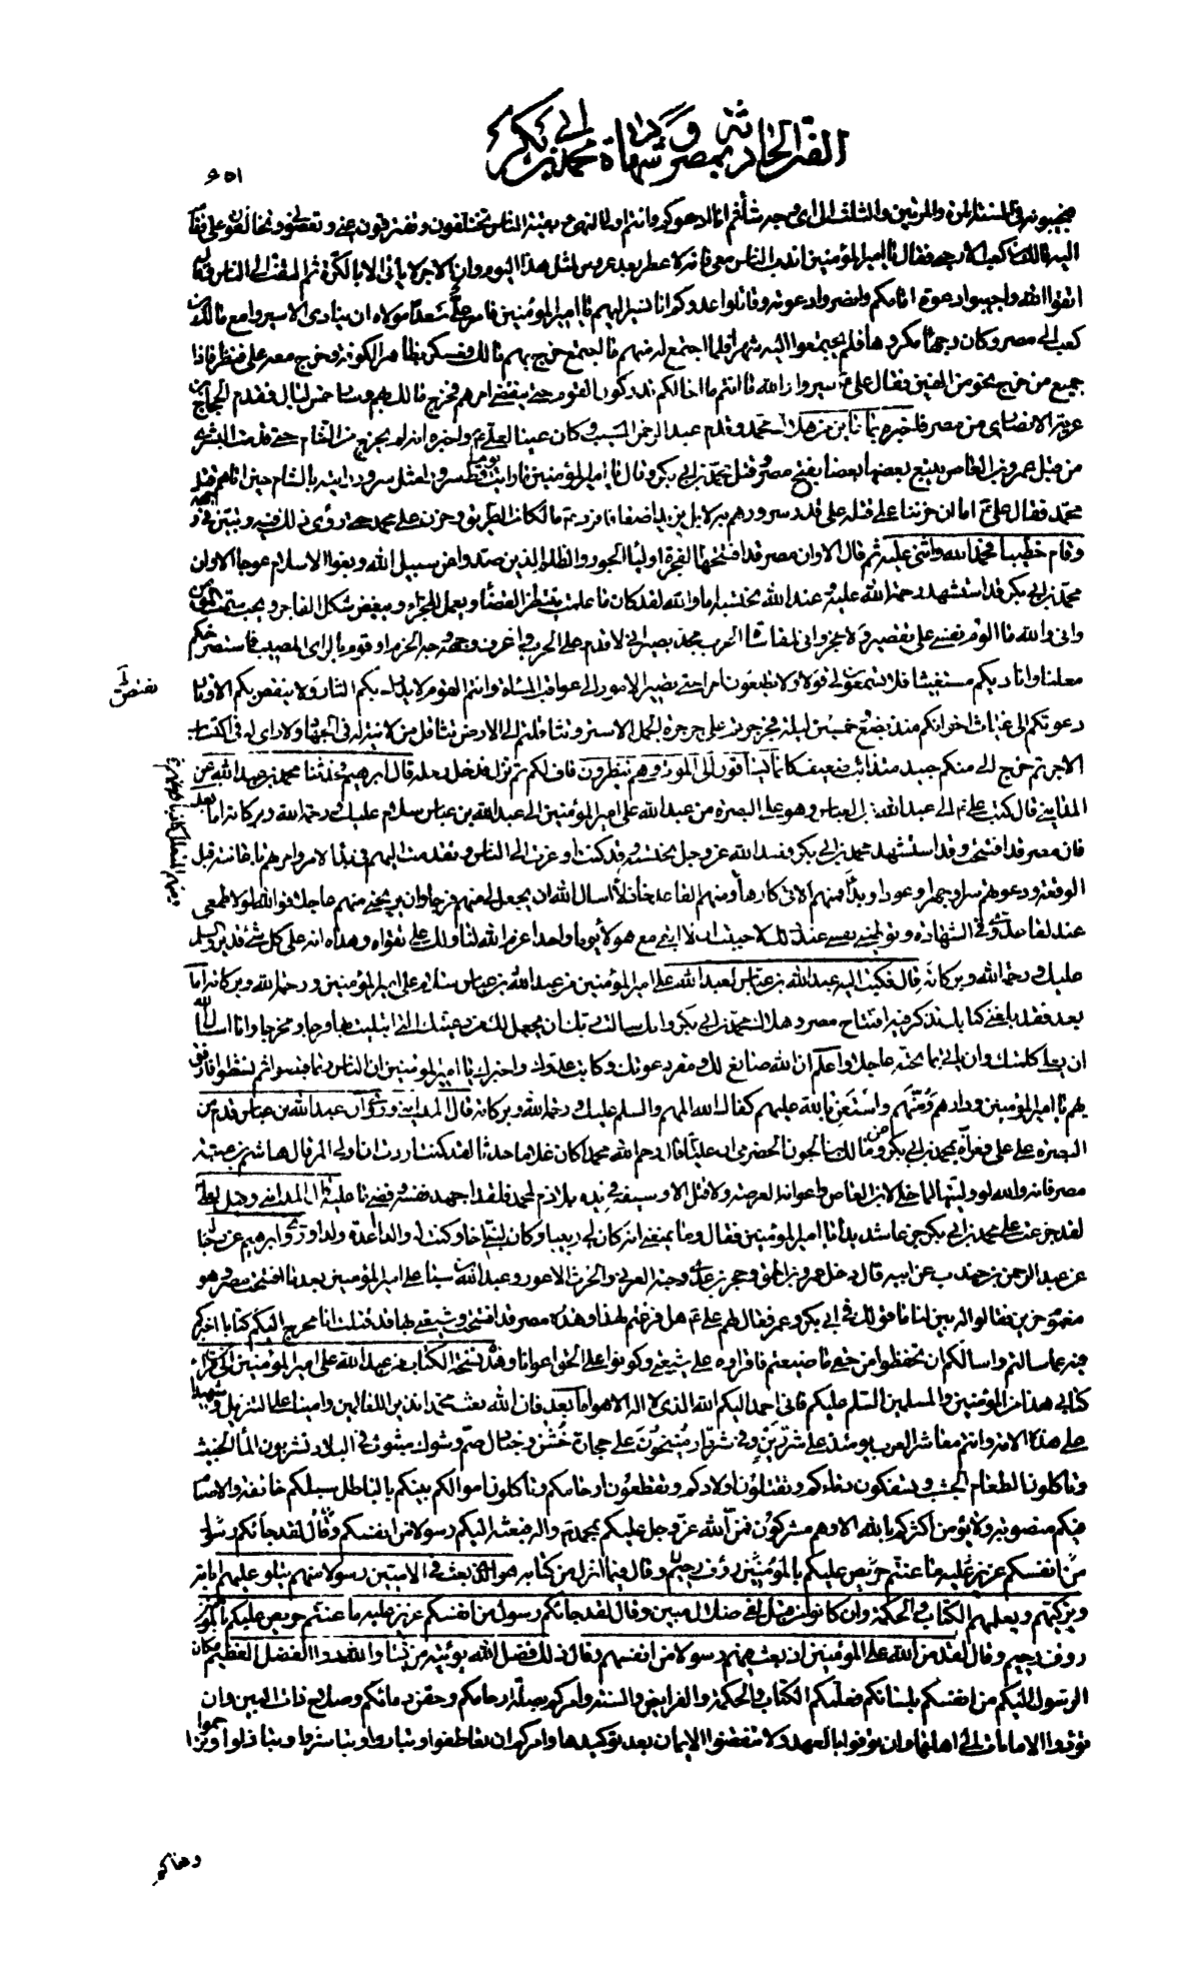 الفتن الحادثة بمصر وشهادة محمد بن أبي بكر
٦٥١
فيجيبونه في السنة المرة والمرتين والثلاث الى اي وجه شاء ثم انا ادعوكم وانتم اولو النهى وبقية الناس تختلفون وتفترقون عني وتعصوني وتخالفون علي فقام
اليه مالك بن كعب الارحبي فقال يا امير المؤمنين اندب الناس معي فانه لا عطر بعد عروس لمثل هذا اليوم وان الاجر لا يأتي الا بالكره ثم التفت الى الناس وقال
اتقوا الله واجيبوا دعوة امامكم وانصروا دعوته وقاتلوا عدوكم انا نسير اليهم يا امير المؤمنين فامر علي سعدا مولاه ان ينادي الا سيروا مع مالك بن
كعب الى مصر وكان وجها مكروها فلم يجتمعوا اليه شهرا فلما اجتمع له منهم ما اجتمع خرج بهم مالك فعسكر بظاهر الكوفة وخرج معه علي فنظر فاذا
جميع من خرج نحو من الفين فقال علي ع سيروا والله ما انتم ما اخالكم تدركون القوم حتى ينقضي امرهم فخرج مالك بهم وسار خمس ليال فقدم الحجاج بن
غزية الانصاري من مصر فاخبره بما عاين من هلاك محمد وقدم عبد الرحمن بن المسيب وكان عينا لعلي ع واخبره انه لم يخرج من الشام حتى قدمت البشرى
من قبل عمرو بن العاص يتبع بعضها بعضا بفتح مصر وقتل محمد بن ابي بكر وقال يا امير المؤمنين ما رايت يوما قط سرورا مثل سرور رايته بالشام حين اتاهم قتل
محمد فقال علي ع اما ان حزننا على قتله على قدر سرورهم به لا بل يزيد اضعافا فرد مالكا من الطريق وحزن على محمد حتى رؤي ذلك فيه وتبين في وجهه
وقام خطيبا فحمد الله واثنى عليه ثم قال الا وان مصر قد افتتحها الفجرة اولياء الجور والظلم الذين صدوا عن سبيل الله وبغوا الاسلام عوجا الا وان
محمد بن ابي بكر قد استشهد رحمة الله عليه وعند الله نحتسبه اما والله لقد كان ما علمت ينتظر القضاء ويعمل للجزاء ويبغض شكل الفاجر ويحب سمت المؤمن
واني والله ما الوم نفسي على تقصير ولا عجز واني لمقاساة الحرب مجد بصير اني لاقدم على الحرب واعرف وجه الحزم واقوم بالراي المصيب فاستصرخكم
معلنا واناديكم مستغيثا فلا تسمعون لي قولا ولا تطيعون امرا حتى تصير الامور الى عواقب المساءة وانتم القوم لا يدرك بكم الثار ولا ينقض بكم الاوتار
دعوتكم الى غياث اخوانكم منذ بضع وخمسين ليلة فجرجرتم علي جرجرة الجمل الاسر وتثاقلتم الى الارض تثاقل من لا نية له في الجهاد ولا راي له في اكتساب
الاجر ثم خرج الي منكم جنيد متذائب ضعيف كانما يساقون الى الموت وهم ينظرون فاف لكم ثم نزل فدخل رحله قال ابرهيم وحدثنا محمد بن عبد الله عن
المدايني قال كتب علي ع الى عبد الله بن العباس وهو على البصرة من عبد الله علي امير المؤمنين الى عبد الله بن عباس سلام عليك ورحمة الله وبركاته اما بعد
فان مصر قد افتتحت وقد استشهد محمد بن ابي بكر فعند الله عز وجل نحتسبه وقد كنت اوعزت الى الناس وتقدمت اليهم في بدء الامر وامرهم باغاثته قبل
الوقعة ودعوتهم سرا وجهرا وعودا وبدأ فمنهم الاتي كارها ومنهم القاعد خاذلا اسال الله ان يجعل لي منهم فرجا وان يريحني منهم عاجلا فوالله لولا طمعي
عند لقاء عدوي في الشهادة وتوطيني نفسي عند ذلك لاحببت ان لا ابقى مع هؤلاء يوما واحدا عزم الله لنا ولك على تقواه وهداه انه على كل شيء قدير والسلام
عليك ورحمة الله وبركاته قال فكتب اليه عبد الله بن عباس لعبد الله علي امير المؤمنين من عبد الله بن عباس سلام على امير المؤمنين ورحمة الله وبركاته اما
بعد فقد بلغني كتابك تذكر فيه افتتاح مصر وهلاك محمد بن ابي بكر وانك سالت ربك ان يجعل لك من رعيتك التي ابتليت بها فرجا ومخرجا وانا اسال الله
ان يعلي كلمتك وان ياتي بما تحبه عاجلا واعلم ان الله صانع لك ومقر دعوتك وكابت عدوك واخبرك يا امير المؤمنين ان الناس ربما قبضوا ثم نشطوا فارفق
بهم يا امير المؤمنين ودارهم ومنهم واستعن بالله عليهم كفاك الله المهم والسلم عليك ورحمة الله وبركاته قال المدايني وروي ان عبد الله بن عباس قدم من
البصرة على علي فعزاه بمحمد بن ابي بكر وعن مالك بن الجون الحضرمي ان عليا قال رحم الله محمدا كان غلاما حدثا لقد كنت اردت ان اولي المرقال هاشم بن عتبة
مصر فانه والله لو وليها لما خلا لابن العاص واعوانه العرصة ولا قتل الا وسيفه في يده بلا ذم لمحمد فلقد اجهد نفسه وقضى ما عليه قال المدايني وقيل لعلي
لقد جزعت على محمد بن ابي بكر جزعا شديدا يا امير المؤمنين فقال وما يمنعني انه كان لي ربيبا وكان لبني اخا وكنت له والدا اعده ولدا وروى ابرهيم عن رجاله
عن عبد الرحمن بن جندب عن ابيه قال دخل عمرو بن الحمق وحجر بن عدي وحبة العرني والحرث الاعور وعبد الله بن سبا على امير المؤمنين بعد ما افتتحت مصر وهو
مغموم حزين فقالوا له بين لنا ما قولك في ابي بكر وعمر فقال لهم علي ع هل فرغتم لهذا وهذه مصر قد افتتحت وشيعتي بها قد قتلت انا مخرج اليكم كتابا اخبركم
فيه عما سالتم واسالكم ان تحفظوا من حقي ما ضيعتم فاقرؤه على شيعتي وكونوا على الحق اعوانا وهذه نسخة الكتاب من عبد الله علي امير المؤمنين الى من قرأ
كتابي هذا من المؤمنين والمسلمين السلم عليكم فاني احمد اليكم الله الذي لا اله الا هو اما بعد فان الله بعث محمدا نذيرا للعالمين وامينا على التنزيل وشهيدا
على هذه الامة وانتم معاشر العرب يومئذ على شر دين وفي شر دار منيخون على حجارة خشن وحيات صم وشوك مبثوث في البلاد تشربون الماء الخبيث
وتاكلون الطعام الجشب وتسفكون دماءكم وتقتلون اولادكم وتقطعون ارحامكم وتاكلون اموالكم بينكم بالباطل سبلكم خائفة والاصنام
فيكم منصوبة ولا يؤمن اكثركم بالله الا وهم مشركون فمن الله عز وجل عليكم بمحمد ص والد بعثه اليكم رسولا من انفسكم وقال لقد جائكم رسول
من انفسكم عزيز عليه ما عنتم حريص عليكم بالمؤمنين رؤف رحيم وقال فيما انزل من كتابه هو الذي بعث في الاميين رسولا منهم يتلو عليهم اياته
ويزكيهم ويعلمهم الكتاب والحكمة وان كانوا من قبل لفي ضلال مبين وقال لقد جائكم رسول من انفسكم عزيز عليه ما عنتم حريص عليكم بالمؤمنين
رؤف رحيم وقال لقد من الله على المؤمنين اذ بعث فيهم رسولا من انفسهم وقال ذلك فضل الله يؤتيه من يشاء والله ذو الفضل العظيم فكان
الرسول اليكم من انفسكم بلسانكم فعلمكم الكتاب والحكمة والفرايض والسنة وامركم بصلة ارحامكم وحقن دمائكم وصلاح ذات البين وان
تؤدوا الامانات الى اهلها وان توفوا بالعهد ولا تنقضوا الايمان بعد توكيدها وامركم ان تعاطفوا وتباروا وتباشروا وتباذلوا وتراحموا
ونهاكم